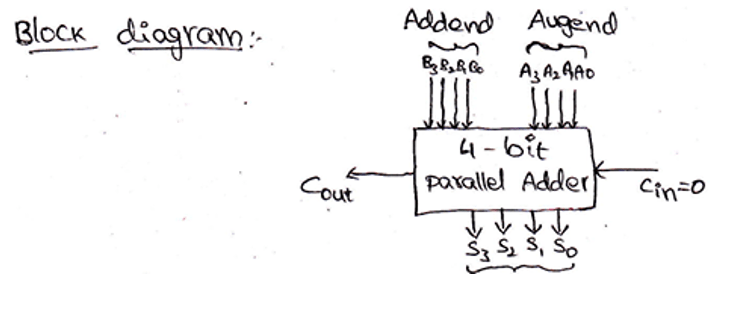 Block diagram:-
Addend Augend
B3 B2 B1 B0 A3 A2 A1 A0
4-bit
parallel Adder
Cout
Cin=0
S3 S2 S1 S0